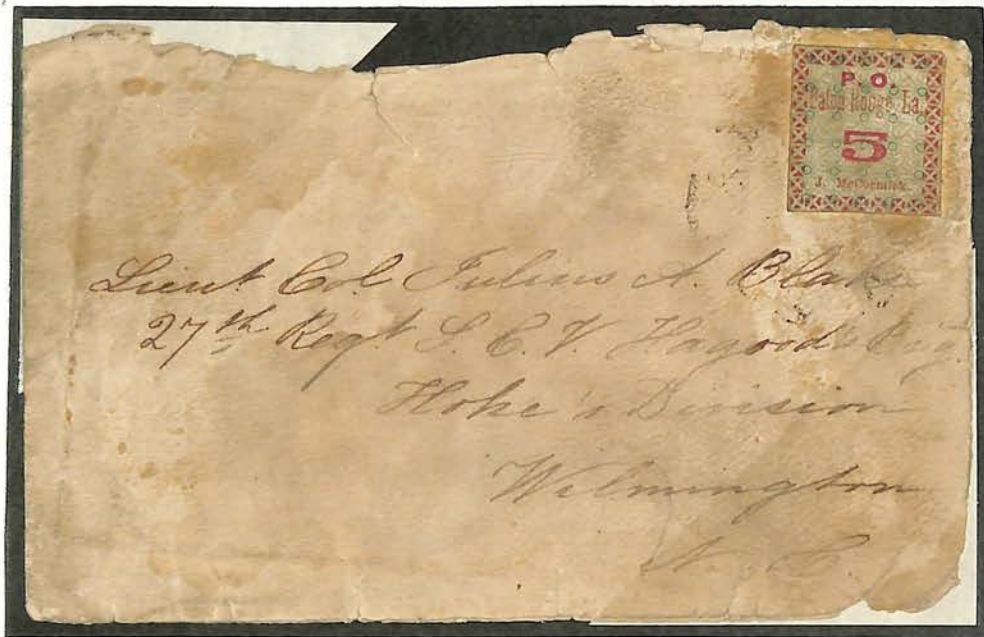 P. O.
Baton Rouge, La.
5
J. McCormick.
Lieut Col Julius A. Blake
27th Regt S. C. V. Hagood's Brig.
Hoke's Division
Wilmington
N. C.